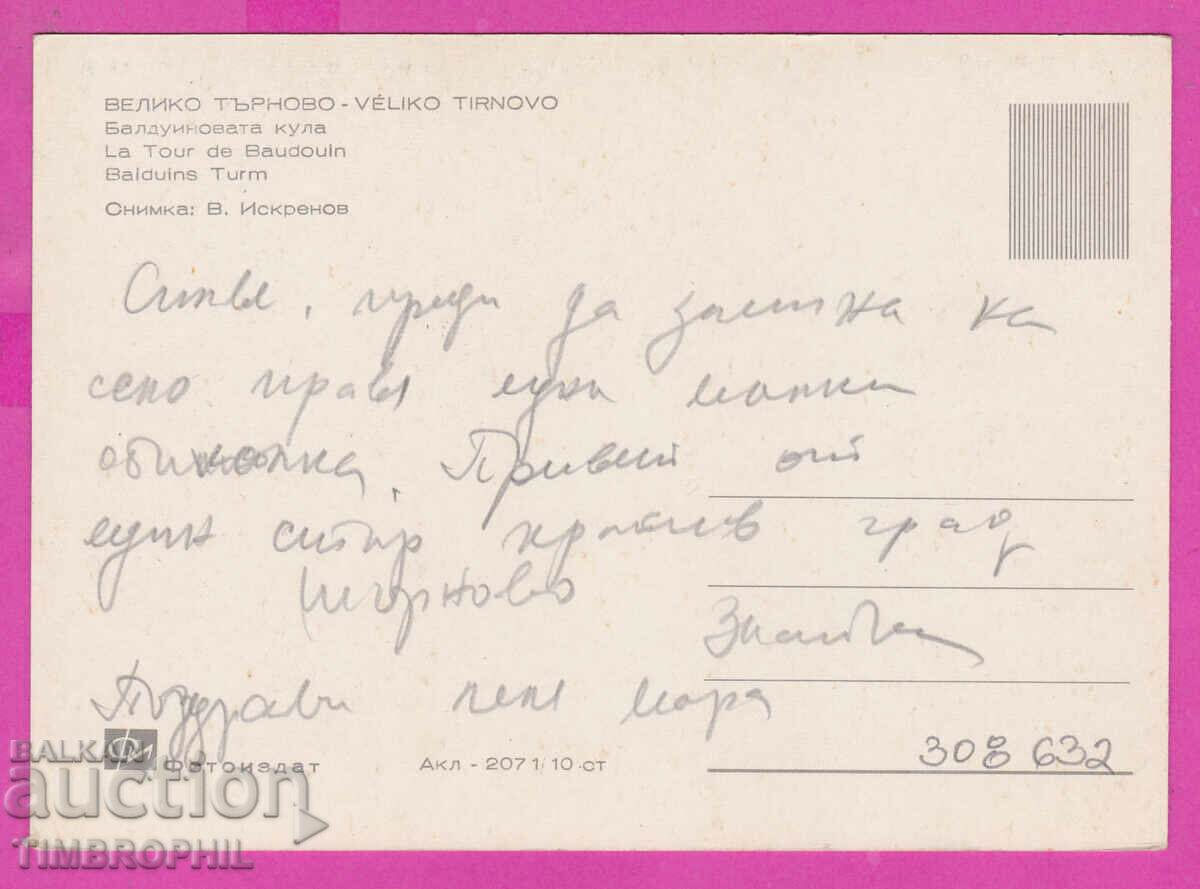 ВЕЛИКО ТЪРНОВО - VÉLIKO TIRNOVO
Балдуиновата кула
La Tour de Baudouin
Balduins Turm
Снимка: В. Искренов
преди да замина на
село правя една малка
обиколка. Привет от
един стар хубав град
Търново
Поздрави леля Мара
Фотоиздат
Акл - 2071/10-ст
308 632
BALKAN
auction
TIMBROPHIL